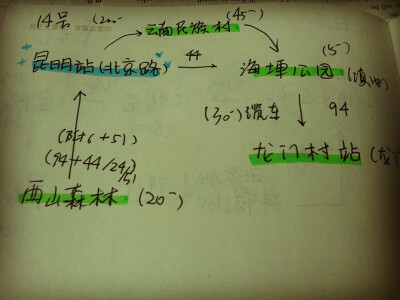 14号 (20-
云南民族村 (45-)
昆明站(北京路)
44
海埂公园 (5-) (滇池)
(30-) 缆车
94
龙门村站 (龙
6+51)
(94+44/24/51
西山森林 (20-)